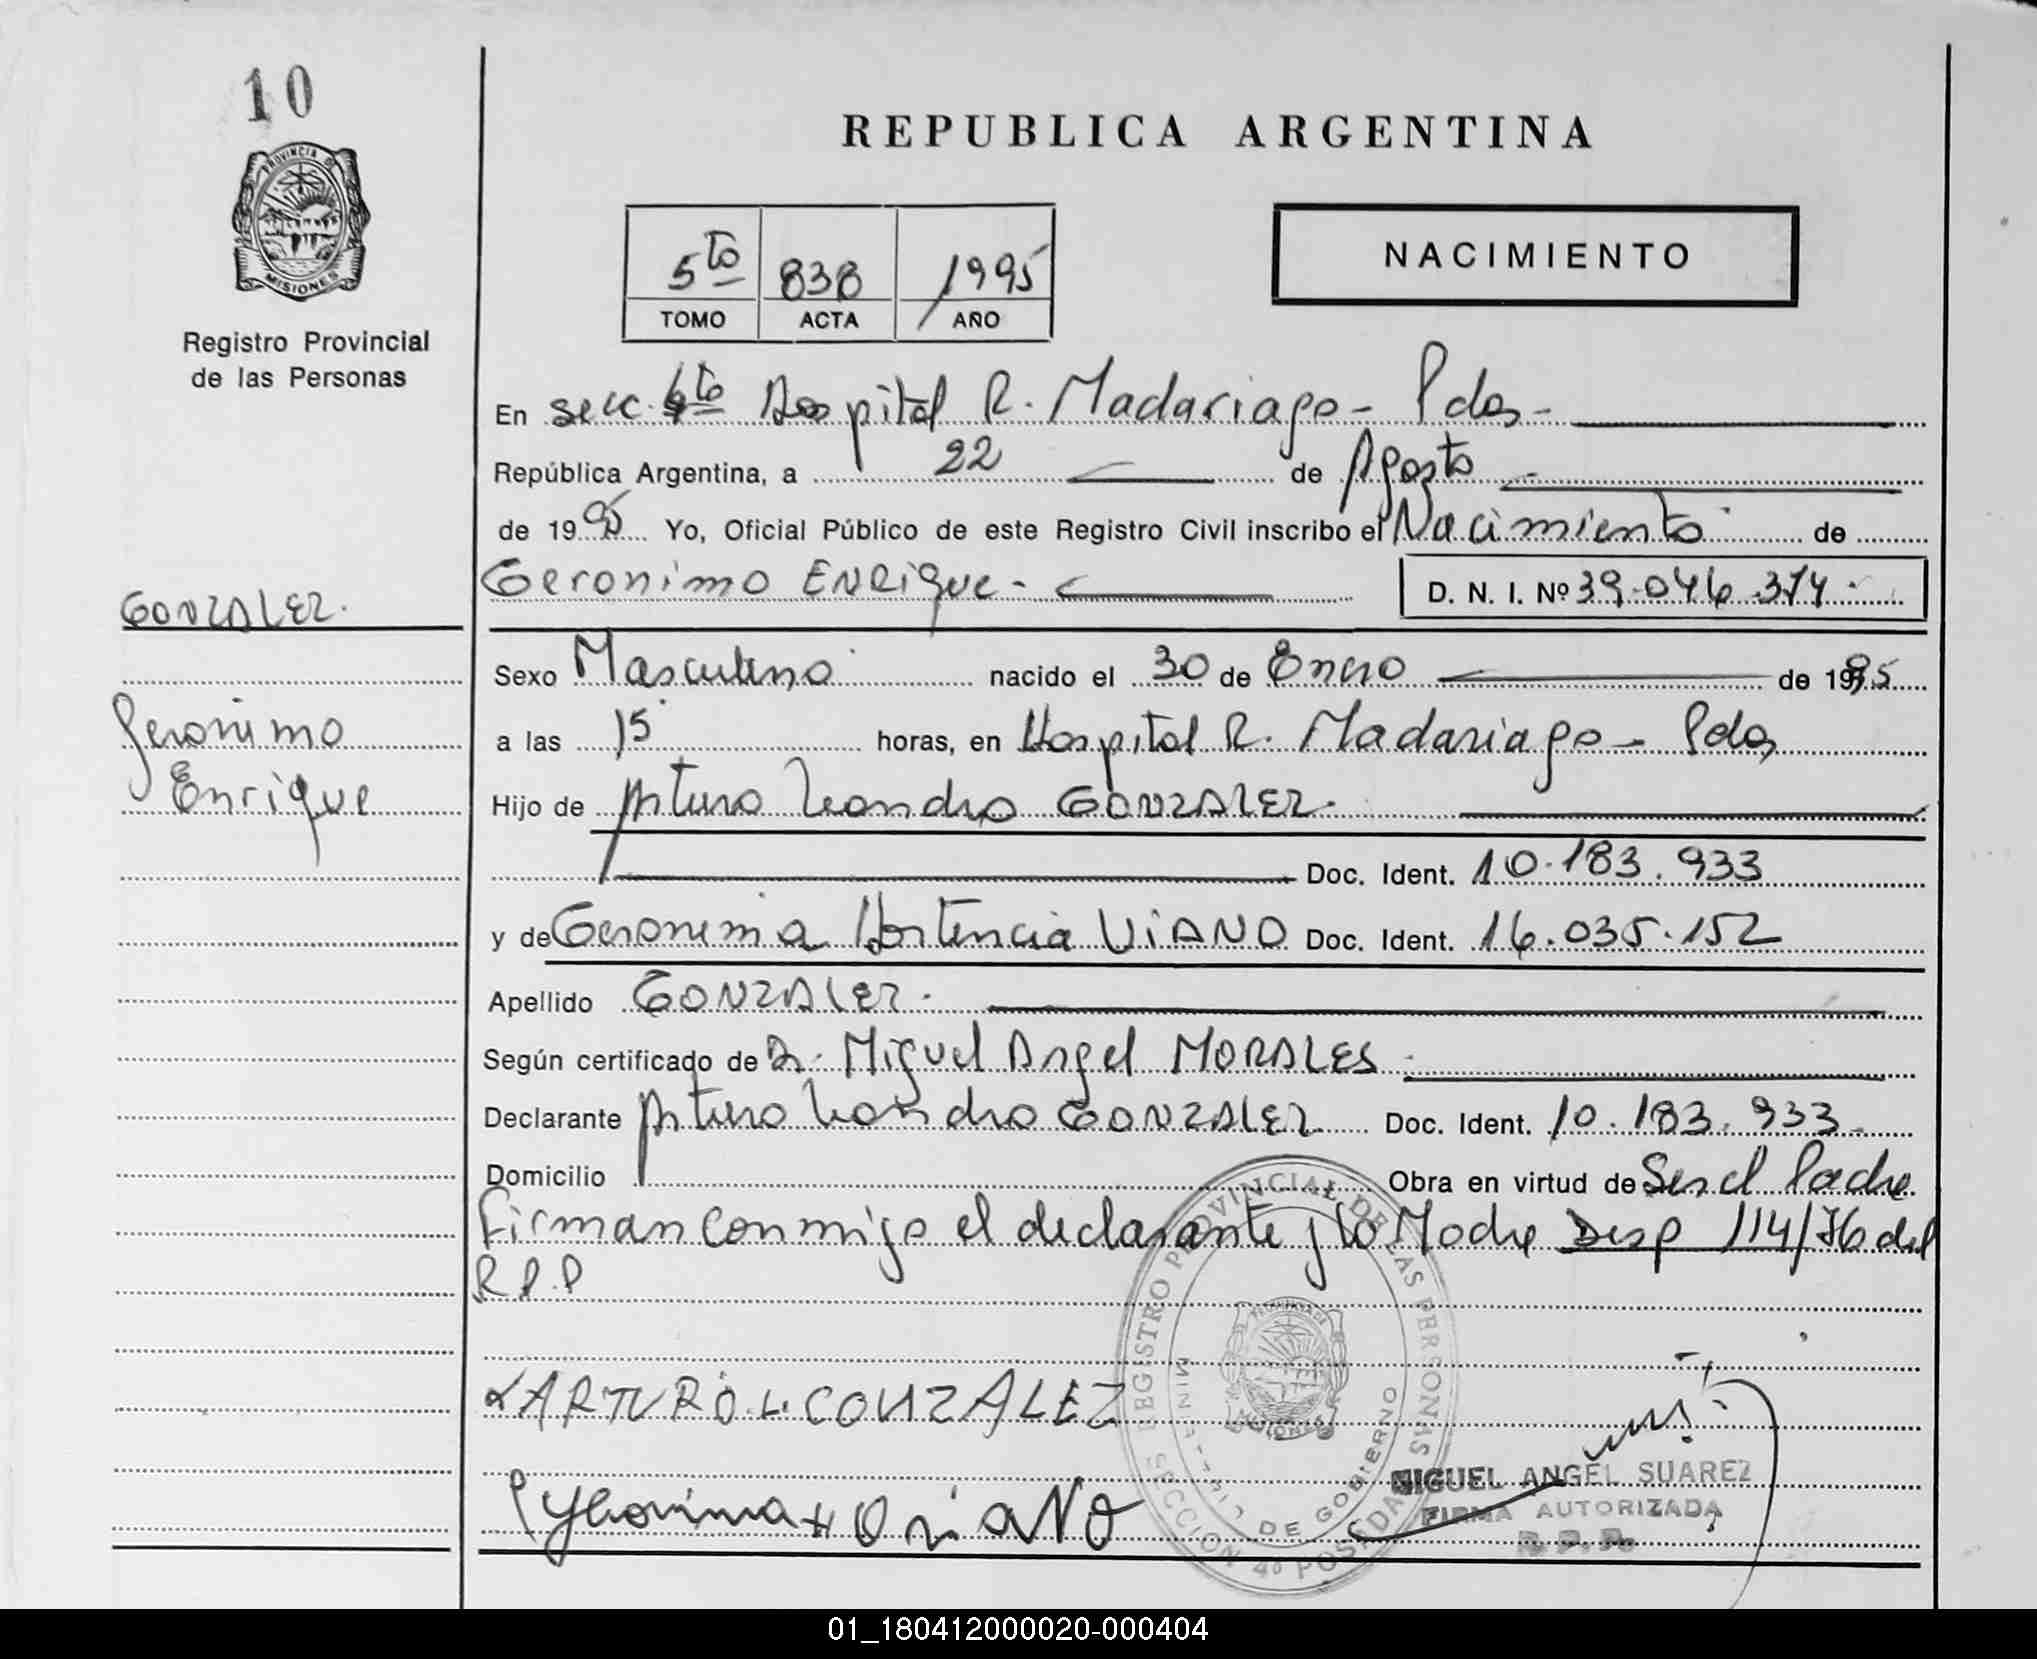 10
PROVINCIA D
MISIONES
Registro Provincial
de las Personas
GONZALEZ.
Geronimo
Enrique
REPUBLICA ARGENTINA
5to 838 1995
TOMO ACTA AÑO
NACIMIENTO
En secc. 4to Hospital R. Madariaga - Pdas -
República Argentina, a 22 de Agosto
de 1995 Yo, Oficial Público de este Registro Civil inscribo el Nacimiento de
Geronimo ENRique - D. N. I. Nº 39.046.374
Sexo Masculino nacido el 30 de Enero de 1995
a las 15 horas, en Hospital R. Madariaga - Pdas
Hijo de Arturo Leandro GONZALEZ.
Doc. Ident. 10.183.933
y de Geronima Hortencia VIANO Doc. Ident. 16.035.152
Apellido GONZALEZ.
Según certificado de Dr. Miguel Angel MORALES
Declarante Arturo Leandro GONZALEZ Doc. Ident. 10.183.933
Domicilio Obra en virtud de Ser el Padre
Firman conmigo el declarante y la Madre Desp 114/76 del
R.P.P
ARTURO.L.GONZALEZ
REGISTRO PROVINCIAL DE LAS PERSONAS
MINISTERIO DE GOBIERNO
SECCION 4º POSADAS
MIGUEL ANGEL SUAREZ
FIRMA AUTORIZADA
R. P. P.
01_180412000020-000404